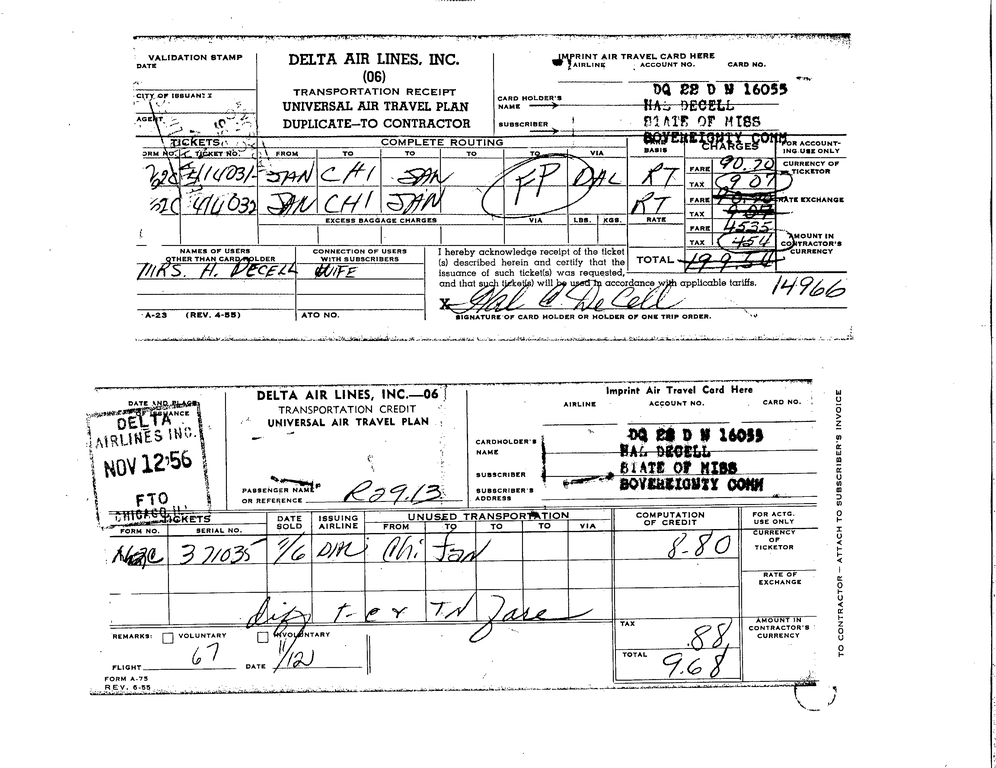 VALIDATION STAMP
DATE
CITY OF ISSUANCE
AGENT
DELTA AIR LINES, INC.
(06)
TRANSPORTATION RECEIPT
UNIVERSAL AIR TRAVEL PLAN
DUPLICATE—TO CONTRACTOR
IMPRINT AIR TRAVEL CARD HERE
AIRLINE ACCOUNT NO. CARD NO.
DQ 22 D N 16055
CARD HOLDER'S
NAME
HAL DECELL
SUBSCRIBER
STATE OF MISS
SOVEREIGNTY COMM
TICKETS COMPLETE ROUTING BASIS CHARGES FOR ACCOUNT-
ING USE ONLY
FORM NO. TICKET NO. FROM TO TO TO TO VIA
414031 JAN CHI JAN FP DAL RT FARE 90.70 CURRENCY OF
TICKETOR
TAX 9 07
414032 JAN CHI JAN RT FARE 90.70 RATE EXCHANGE
EXCESS BAGGAGE CHARGES VIA LBS. KGS. RATE TAX 9.07
FARE 4535
TAX 454 AMOUNT IN
CONTRACTOR'S
CURRENCY
TOTAL 199.54
NAMES OF USERS
OTHER THAN CARD HOLDER
MRS. H. DECELL
CONNECTION OF USERS
WITH SUBSCRIBERS
WIFE
I hereby acknowledge receipt of the ticket
(s) described herein and certify that the
issuance of such ticket(s) was requested,
and that such ticket(s) will be used in accordance with applicable tariffs.
14966
X Hal C. DeCell
SIGNATURE OF CARD HOLDER OR HOLDER OF ONE TRIP ORDER.
A-23 (REV. 4-55) ATO NO.
DATE AND PLACE
OF ISSUANCE
DELTA
AIRLINES INC.
NOV 12'56
FTO
CHICAGO ILL.
DELTA AIR LINES, INC.—06
TRANSPORTATION CREDIT
UNIVERSAL AIR TRAVEL PLAN
PASSENGER NAME
OR REFERENCE R2913
Imprint Air Travel Card Here
AIRLINE ACCOUNT NO. CARD NO.
DQ 22 D N 16055
CARDHOLDER'S
NAME
HAL DECELL
SUBSCRIBER
STATE OF MISS
SUBSCRIBER'S
ADDRESS
SOVEREIGNTY COMM
TICKETS DATE
SOLD ISSUING
AIRLINE UNUSED TRANSPORTATION COMPUTATION
OF CREDIT FOR ACTG.
USE ONLY
FORM NO. SERIAL NO. FROM TO TO TO VIA CURRENCY
OF
TICKETOR
371035 7/6 DAL Chi Jan 8-80
RATE OF
EXCHANGE
TAX .88
AMOUNT IN
CONTRACTOR'S
CURRENCY
REMARKS: VOLUNTARY INVOLUNTARY
TOTAL 9.68
FLIGHT 67 DATE 11/12
FORM A-75
REV. 6-55
TO CONTRACTOR — ATTACH TO SUBSCRIBER'S INVOICE